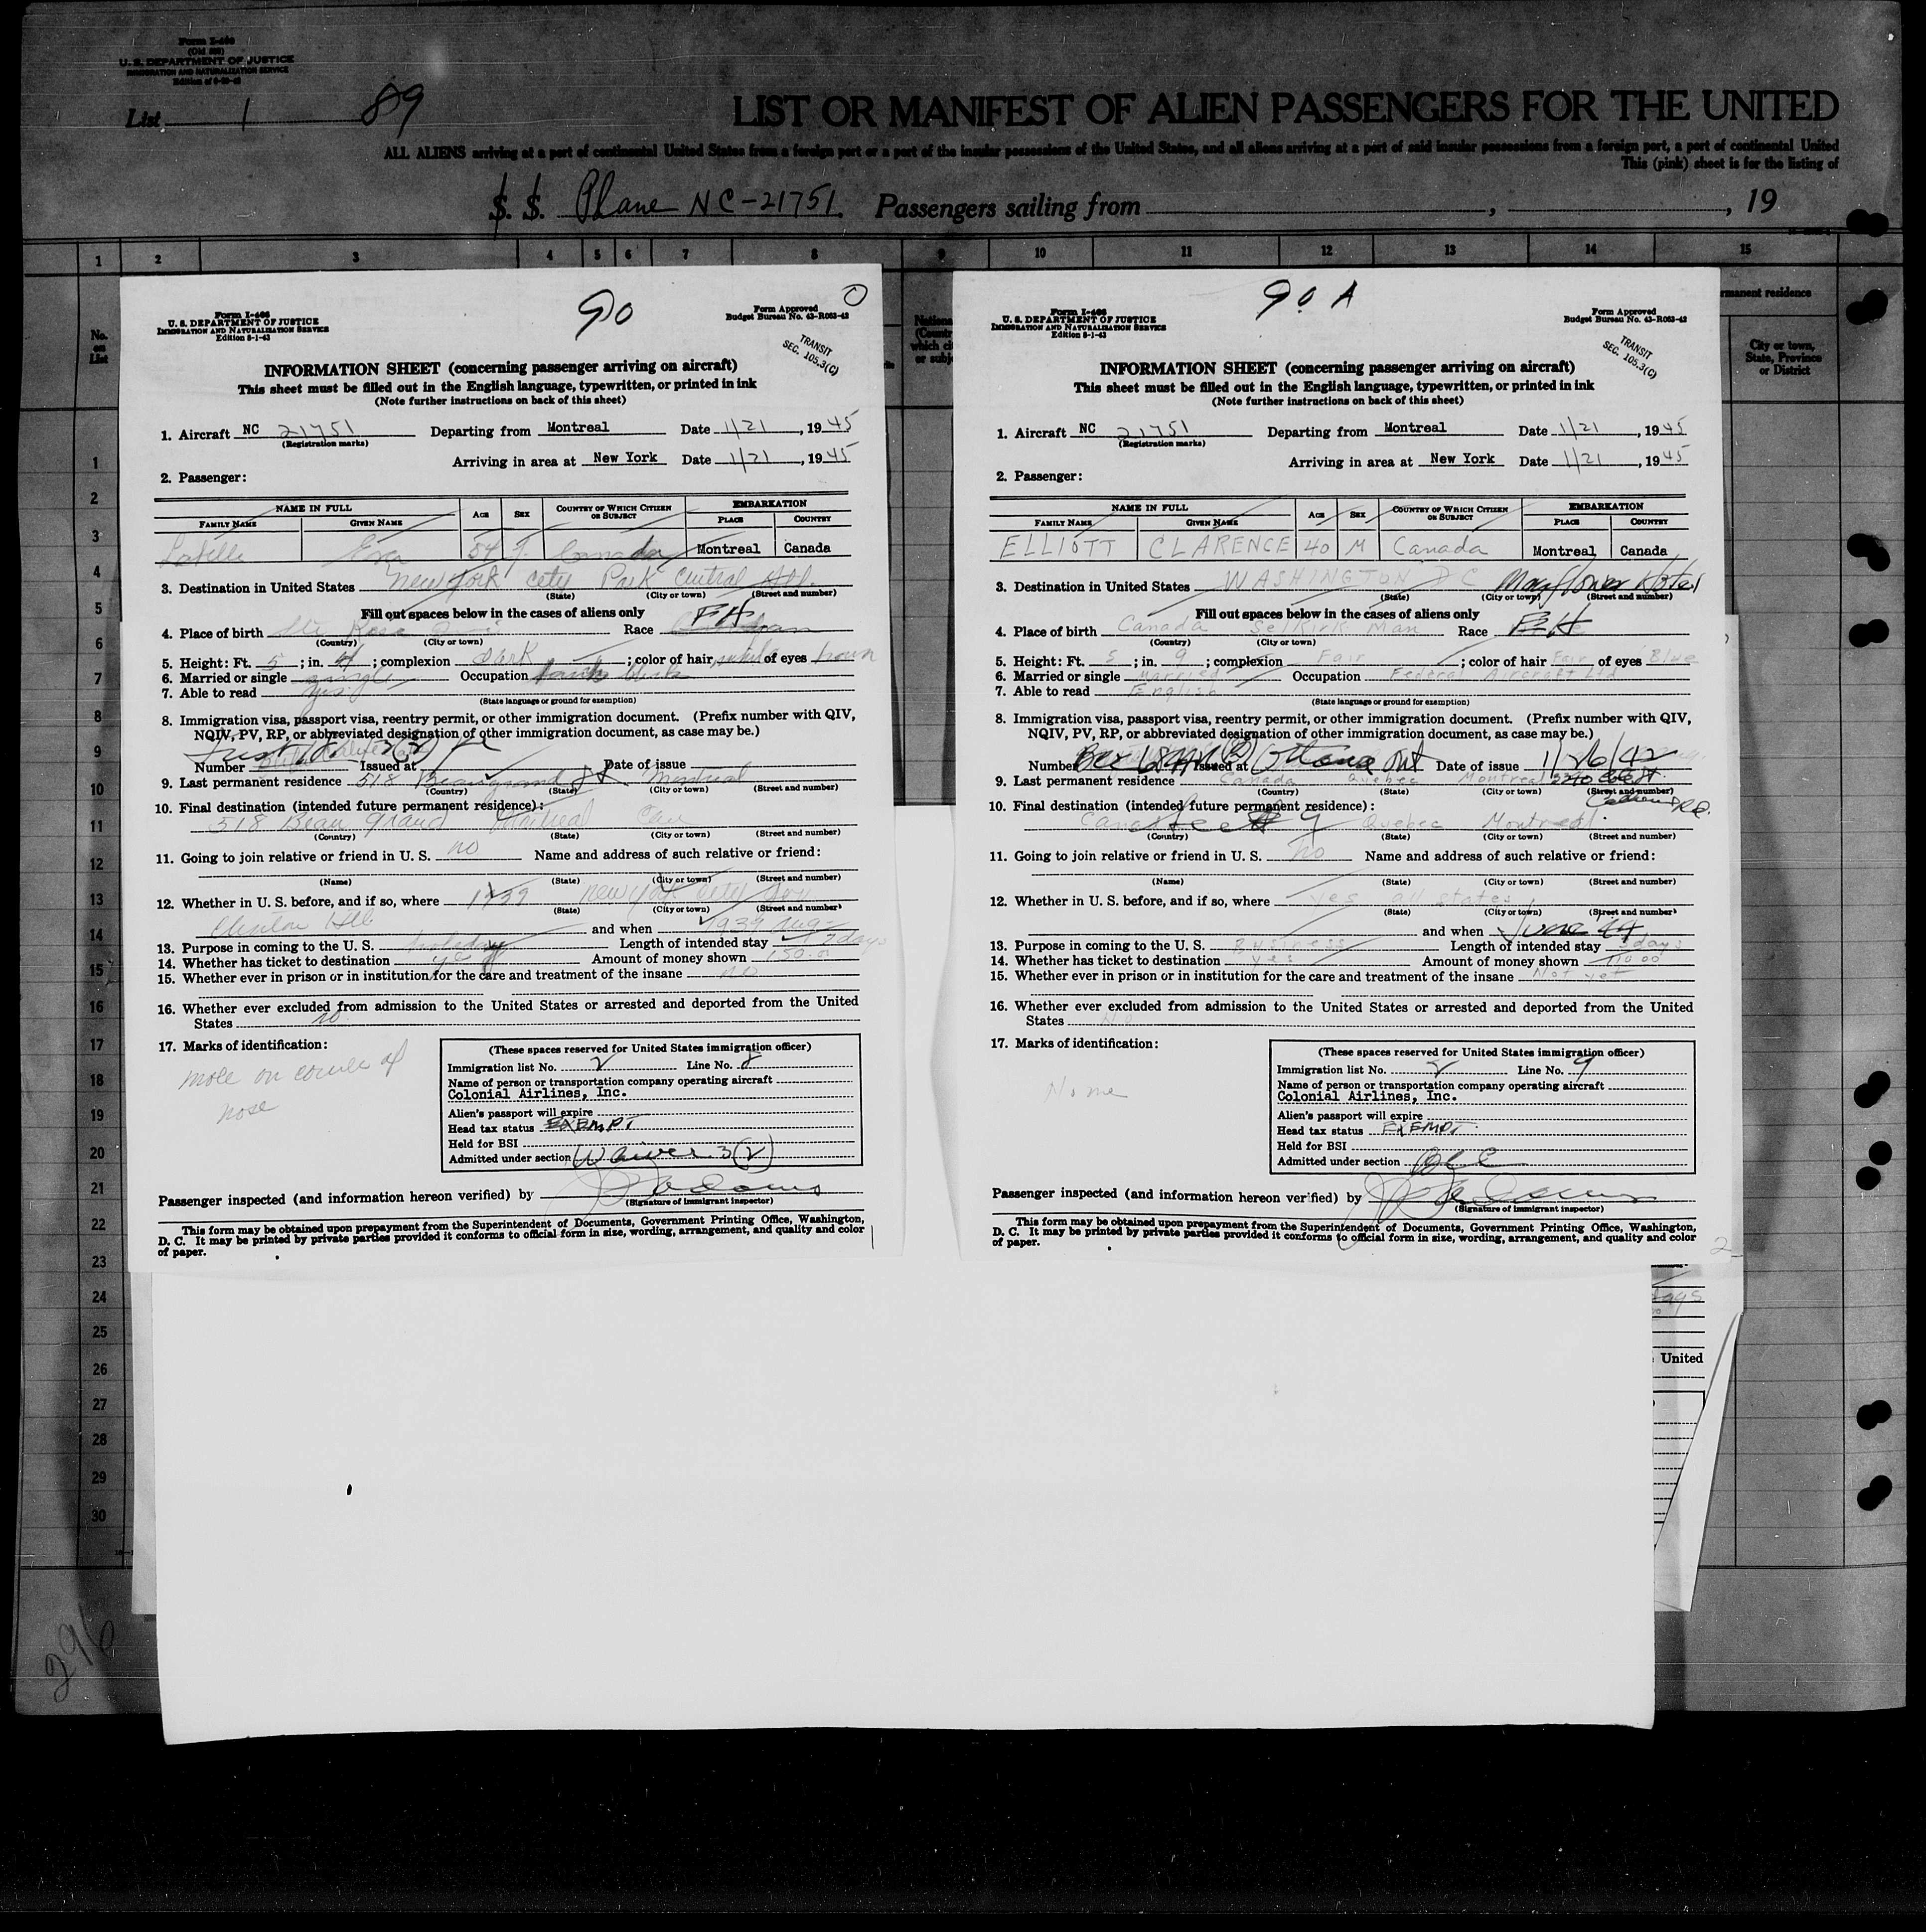 Form I-466
(Old 500)
U. S. DEPARTMENT OF JUSTICE
IMMIGRATION AND NATURALIZATION SERVICE
List 1 89
LIST OR MANIFEST OF ALIEN PASSENGERS FOR THE UNITED
ALL ALIENS arriving at a port of continental United States from a foreign port or a port of the insular possessions of the United States, and all aliens arriving at a port of said insular possessions from a foreign port, a port of continental United
This (pink) sheet is for the listing of
S. S. Plane NC-21751. Passengers sailing from , , 19
1 2 3 4 5 6 7 8 9 10 11 12 13 14 15
No.
on
List
permanent residence
City or town,
State, Province
or District
1
2
3
4
5
6
7
8
9
10
11
12
13
14
15
16
17
18
19
20
21
22
23
24
25
26
27
28
29
30
296
90
Form I-466
U. S. DEPARTMENT OF JUSTICE
IMMIGRATION AND NATURALIZATION SERVICE
Edition 8-1-43
Form Approved
Budget Bureau No. 43-R063-42
TRANSIT
SEC. 105.3(C)
INFORMATION SHEET (concerning passenger arriving on aircraft)
This sheet must be filled out in the English language, typewritten, or printed in ink
(Note further instructions on back of this sheet)
1. Aircraft NC 21751 Departing from Montreal Date 1/21, 1945
(Registration marks)
Arriving in area at New York Date 1/21, 1945
2. Passenger:
NAME IN FULL AGE SEX COUNTRY OF WHICH CITIZEN OR SUBJECT EMBARKATION
FAMILY NAME GIVEN NAME PLACE COUNTRY
Labelle Eva 54 F. Canada Montreal Canada
3. Destination in United States New York City Park Central Htl.
(State) (City or town) (Street and number)
Fill out spaces below in the cases of aliens only
4. Place of birth Ste Rose Race FH
(Country) (City or town)
5. Height: Ft. 5; in. 4; complexion Dark; color of hair white of eyes brown
6. Married or single single Occupation bank clerk
7. Able to read yes
(State language or ground for exemption)
8. Immigration visa, passport visa, reentry permit, or other immigration document. (Prefix number with QIV,
NQIV, PV, RP, or abbreviated designation of other immigration document, as case may be.)
Number Issued at Date of issue
9. Last permanent residence 518 Beaugrand St Montreal
(Country) (State) (City or town) (Street and number)
10. Final destination (intended future permanent residence):
518 Beau grand Montreal Can
(Country) (State) (City or town) (Street and number)
11. Going to join relative or friend in U. S. no Name and address of such relative or friend:
(Name) (State) (City or town) (Street and number)
12. Whether in U. S. before, and if so, where 1939 New York City
(State) (City or town) (Street and number)
Clinton Htl and when 1939 Aug
13. Purpose in coming to the U. S. holiday Length of intended stay days
14. Whether has ticket to destination yes Amount of money shown 150.00
15. Whether ever in prison or in institution for the care and treatment of the insane no
16. Whether ever excluded from admission to the United States or arrested and deported from the United
States no
17. Marks of identification:
mole on corner of
nose
(These spaces reserved for United States immigration officer)
Immigration list No. 2 Line No. 8
Name of person or transportation company operating aircraft
Colonial Airlines, Inc.
Alien's passport will expire
Head tax status EXEMPT
Held for BSI
Admitted under section Waiver 3(2)
Passenger inspected (and information hereon verified) by
(Signature of immigrant inspector)
This form may be obtained upon prepayment from the Superintendent of Documents, Government Printing Office, Washington,
D. C. It may be printed by private parties provided it conforms to official form in size, wording, arrangement, and quality and color
of paper.
90 A
Form I-466
U. S. DEPARTMENT OF JUSTICE
IMMIGRATION AND NATURALIZATION SERVICE
Edition 8-1-43
Form Approved
Budget Bureau No. 43-R063-42
TRANSIT
SEC. 105.3(C)
INFORMATION SHEET (concerning passenger arriving on aircraft)
This sheet must be filled out in the English language, typewritten, or printed in ink
(Note further instructions on back of this sheet)
1. Aircraft NC 21751 Departing from Montreal Date 1/21, 1945
(Registration marks)
Arriving in area at New York Date 1/21, 1945
2. Passenger:
NAME IN FULL AGE SEX COUNTRY OF WHICH CITIZEN OR SUBJECT EMBARKATION
FAMILY NAME GIVEN NAME PLACE COUNTRY
ELLIOTT CLARENCE 40 M Canada Montreal Canada
3. Destination in United States WASHINGTON D C Mayflower Hotel
(State) (City or town) (Street and number)
Fill out spaces below in the cases of aliens only
4. Place of birth Canada Selkirk Man Race
(Country) (City or town)
5. Height: Ft. 5; in. 9; complexion Fair; color of hair Fair of eyes Blue
6. Married or single Married Occupation Federal Aircraft Ltd
7. Able to read English
(State language or ground for exemption)
8. Immigration visa, passport visa, reentry permit, or other immigration document. (Prefix number with QIV,
NQIV, PV, RP, or abbreviated designation of other immigration document, as case may be.)
Number Issued at Ottawa Ont Date of issue 1/26/42
9. Last permanent residence Canada Quebec Montreal
(Country) (State) (City or town) (Street and number)
10. Final destination (intended future permanent residence):
Canada Quebec Montreal.
(Country) (State) (City or town) (Street and number)
11. Going to join relative or friend in U. S. No Name and address of such relative or friend:
(Name) (State) (City or town) (Street and number)
12. Whether in U. S. before, and if so, where Yes all states
(State) (City or town) (Street and number)
and when June 44
13. Purpose in coming to the U. S. Business Length of intended stay days
14. Whether has ticket to destination Yes Amount of money shown
15. Whether ever in prison or in institution for the care and treatment of the insane Not yet
16. Whether ever excluded from admission to the United States or arrested and deported from the United
States No
17. Marks of identification:
None
(These spaces reserved for United States immigration officer)
Immigration list No. 2 Line No. 9
Name of person or transportation company operating aircraft
Colonial Airlines, Inc.
Alien's passport will expire
Head tax status EXEMPT.
Held for BSI
Admitted under section
Passenger inspected (and information hereon verified) by
(Signature of immigrant inspector)
This form may be obtained upon prepayment from the Superintendent of Documents, Government Printing Office, Washington,
D. C. It may be printed by private parties provided it conforms to official form in size, wording, arrangement, and quality and color
of paper.
2
days
United